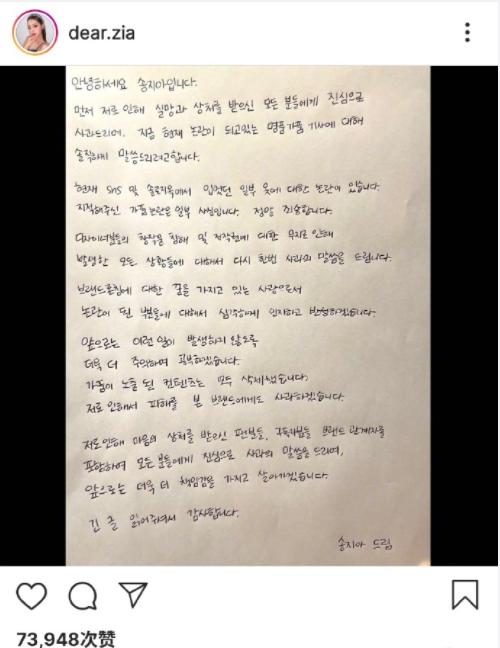 dear.zia
안녕하세요 송지아입니다.
먼저 저로 인해 실망과 상처를 받으신 모든 분들에게 진심으로
사과드리며, 지금 현재 논란이 되고있는 명품가품 기사에 대해
솔직하게 말씀드리려고합니다.
현재 sns 및 솔로지옥에서 입었던 일부 옷에 대한 논란이 있습니다.
지적해주신 가품논란은 일부 사실입니다. 정말 죄송합니다.
디자이너분들의 창작물 침해 및 저작권에 대한 무지로 인해
발생한 모든 상황들에 대해서 다시 한번 사과의 말씀을 드립니다.
브랜드론칭에 대한 꿈을 가지고 있는 사람으로서
논란이 된 부분들에 대해서 심각하게 인지하고 반성하겠습니다.
앞으로는 이런 일이 발생하지 않도록
더욱 더 주의하며 공부하겠습니다.
가품이 노출 된 컨텐츠는 모두 삭제했습니다.
저로 인해서 피해를 본 브랜드에게도 사과하겠습니다.
저로인해 마음의 상처를 받으신 팬분들, 구독자분들 브랜드 관계자를
포함하여 모든 분들에게 진심으로 사과의 말씀을 드리며,
앞으로는 더욱 더 책임감을 가지고 살아가겠습니다.
긴 글 읽어주셔서 감사합니다.
송지아 드림
73,948次赞